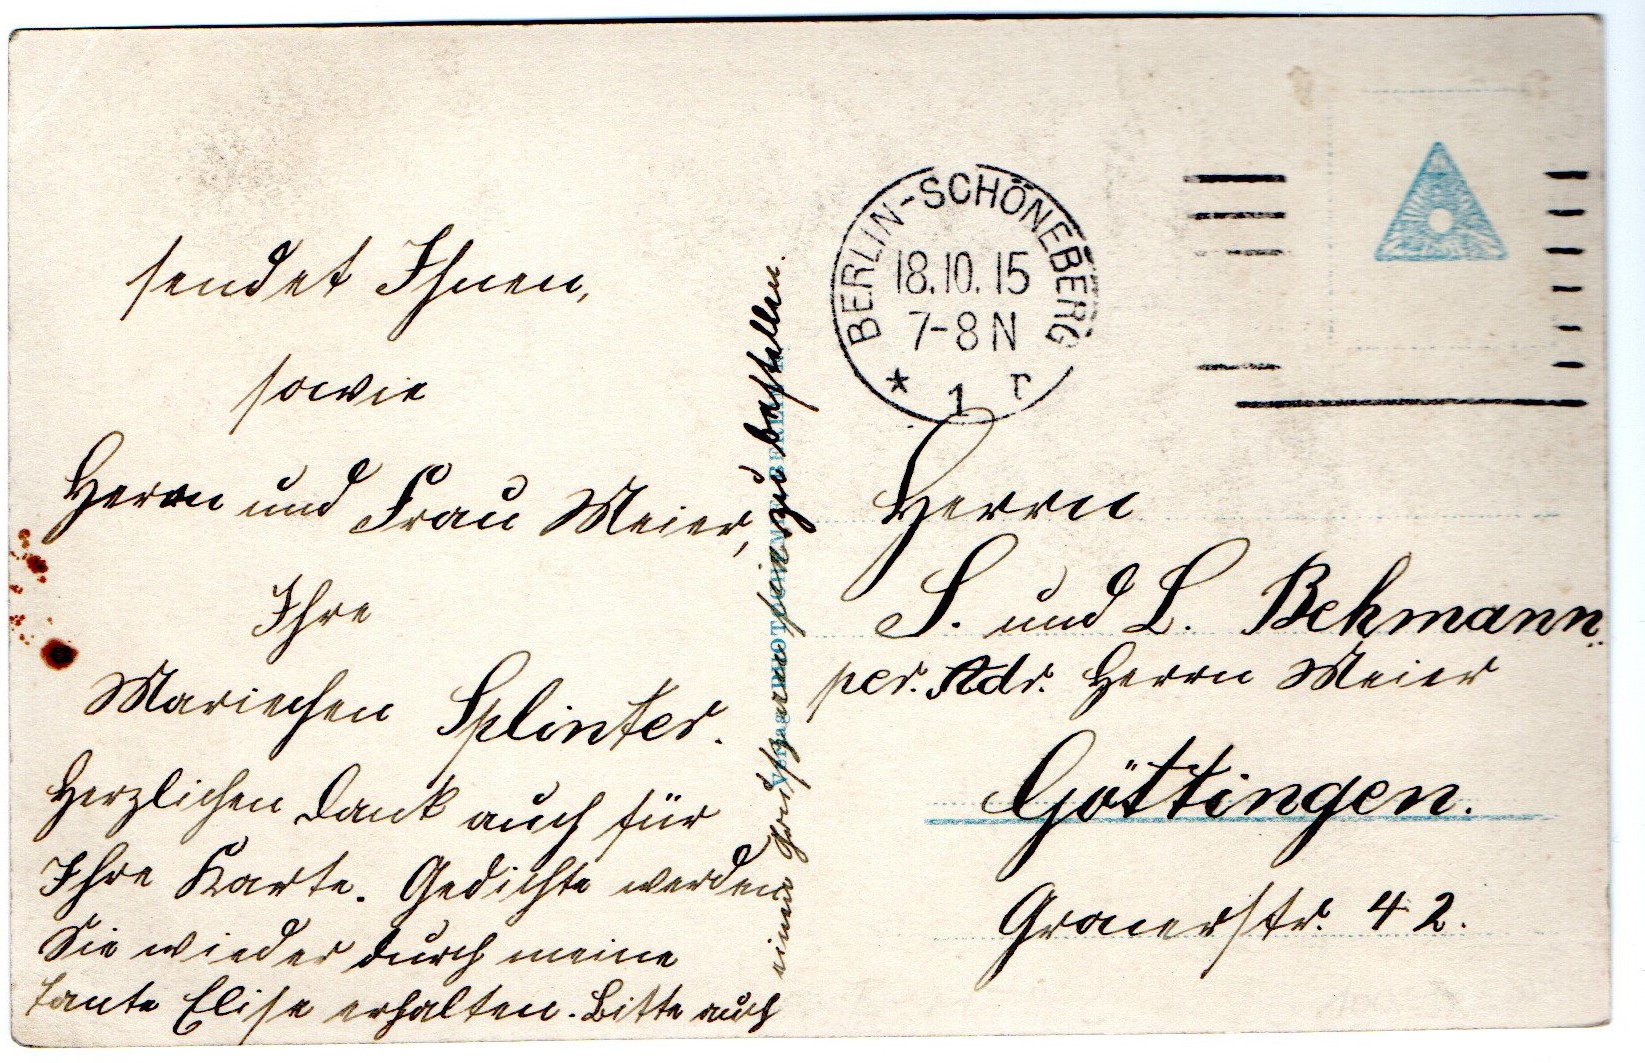 sendet Ihnen,
sowie
Herrn und Frau Meier,
Ihre
Mariechen Splinter.
Herzlichen Dank auch für
Ihre Karte. Gedichte werden
Sie wieder durch meine
Tante Elise erhalten. Bitte auch
einen zu bestellen.
BERLIN-SCHÖNEBERG
18.10.15
7-8 N
* 1 r
Herrn
S. und L. Behmann
per. Adr. Herrn Meier
Göttingen.
Gronerstr. 42.